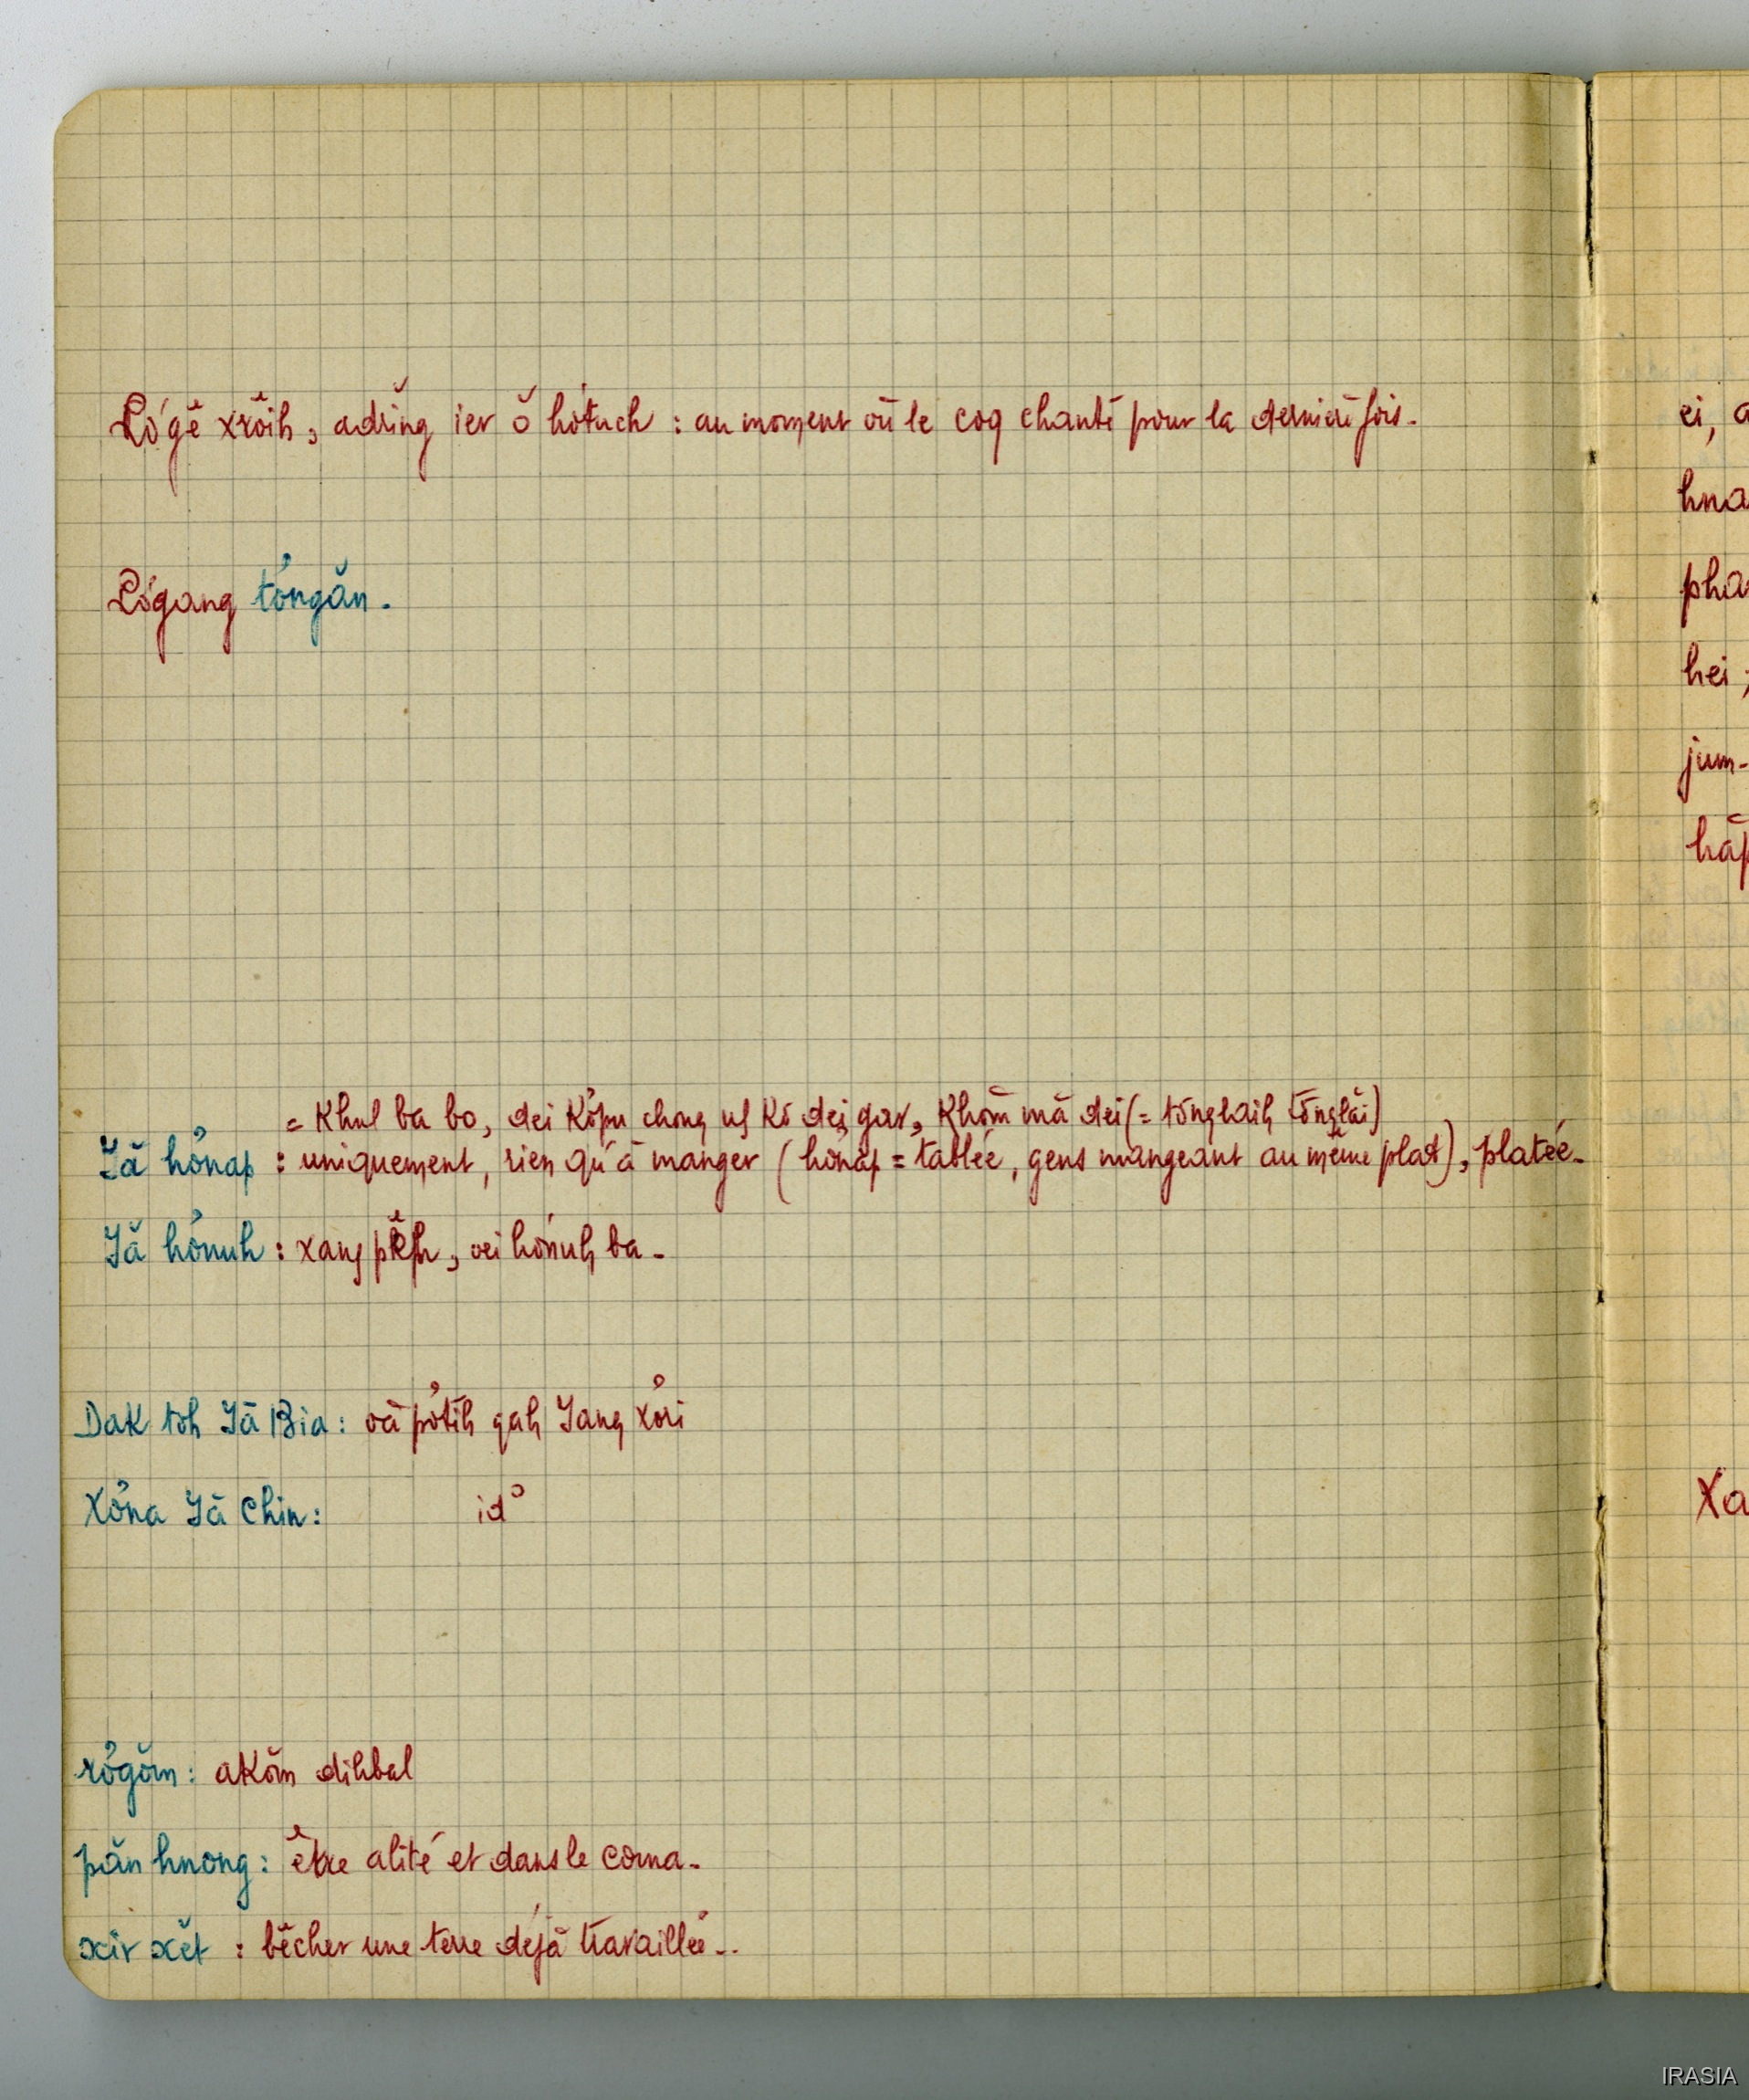 Lơgê xrôih, adrĭng ier ŏ hơtuch : au moment où le coq chante pour la dernière fois.
Lơgang tơngăn.
= Khul ba bo, dei kơpu chong uh kơ dei gar, Khŏm mă dei (= tơnglaih tơnglăi)
Jă hơnap : uniquement, rien qu'à manger (hơnap = tablée, gens mangeant au même plat), platée.
Jă hơnuh : xang pêh, oei hơnuh ba.
Dak tơh Jă Bia : oă pơtih gah Jang Xơri
Xơna Jă Chin : idº
rơgŏm : akŏm dihbal
păn hnong : être alité et dans le coma.
xir xĕt : bêcher une terre déjà travaillée..
ei, a
hna
pha
hei ;
jum-
hăp
Xa
IRASIA